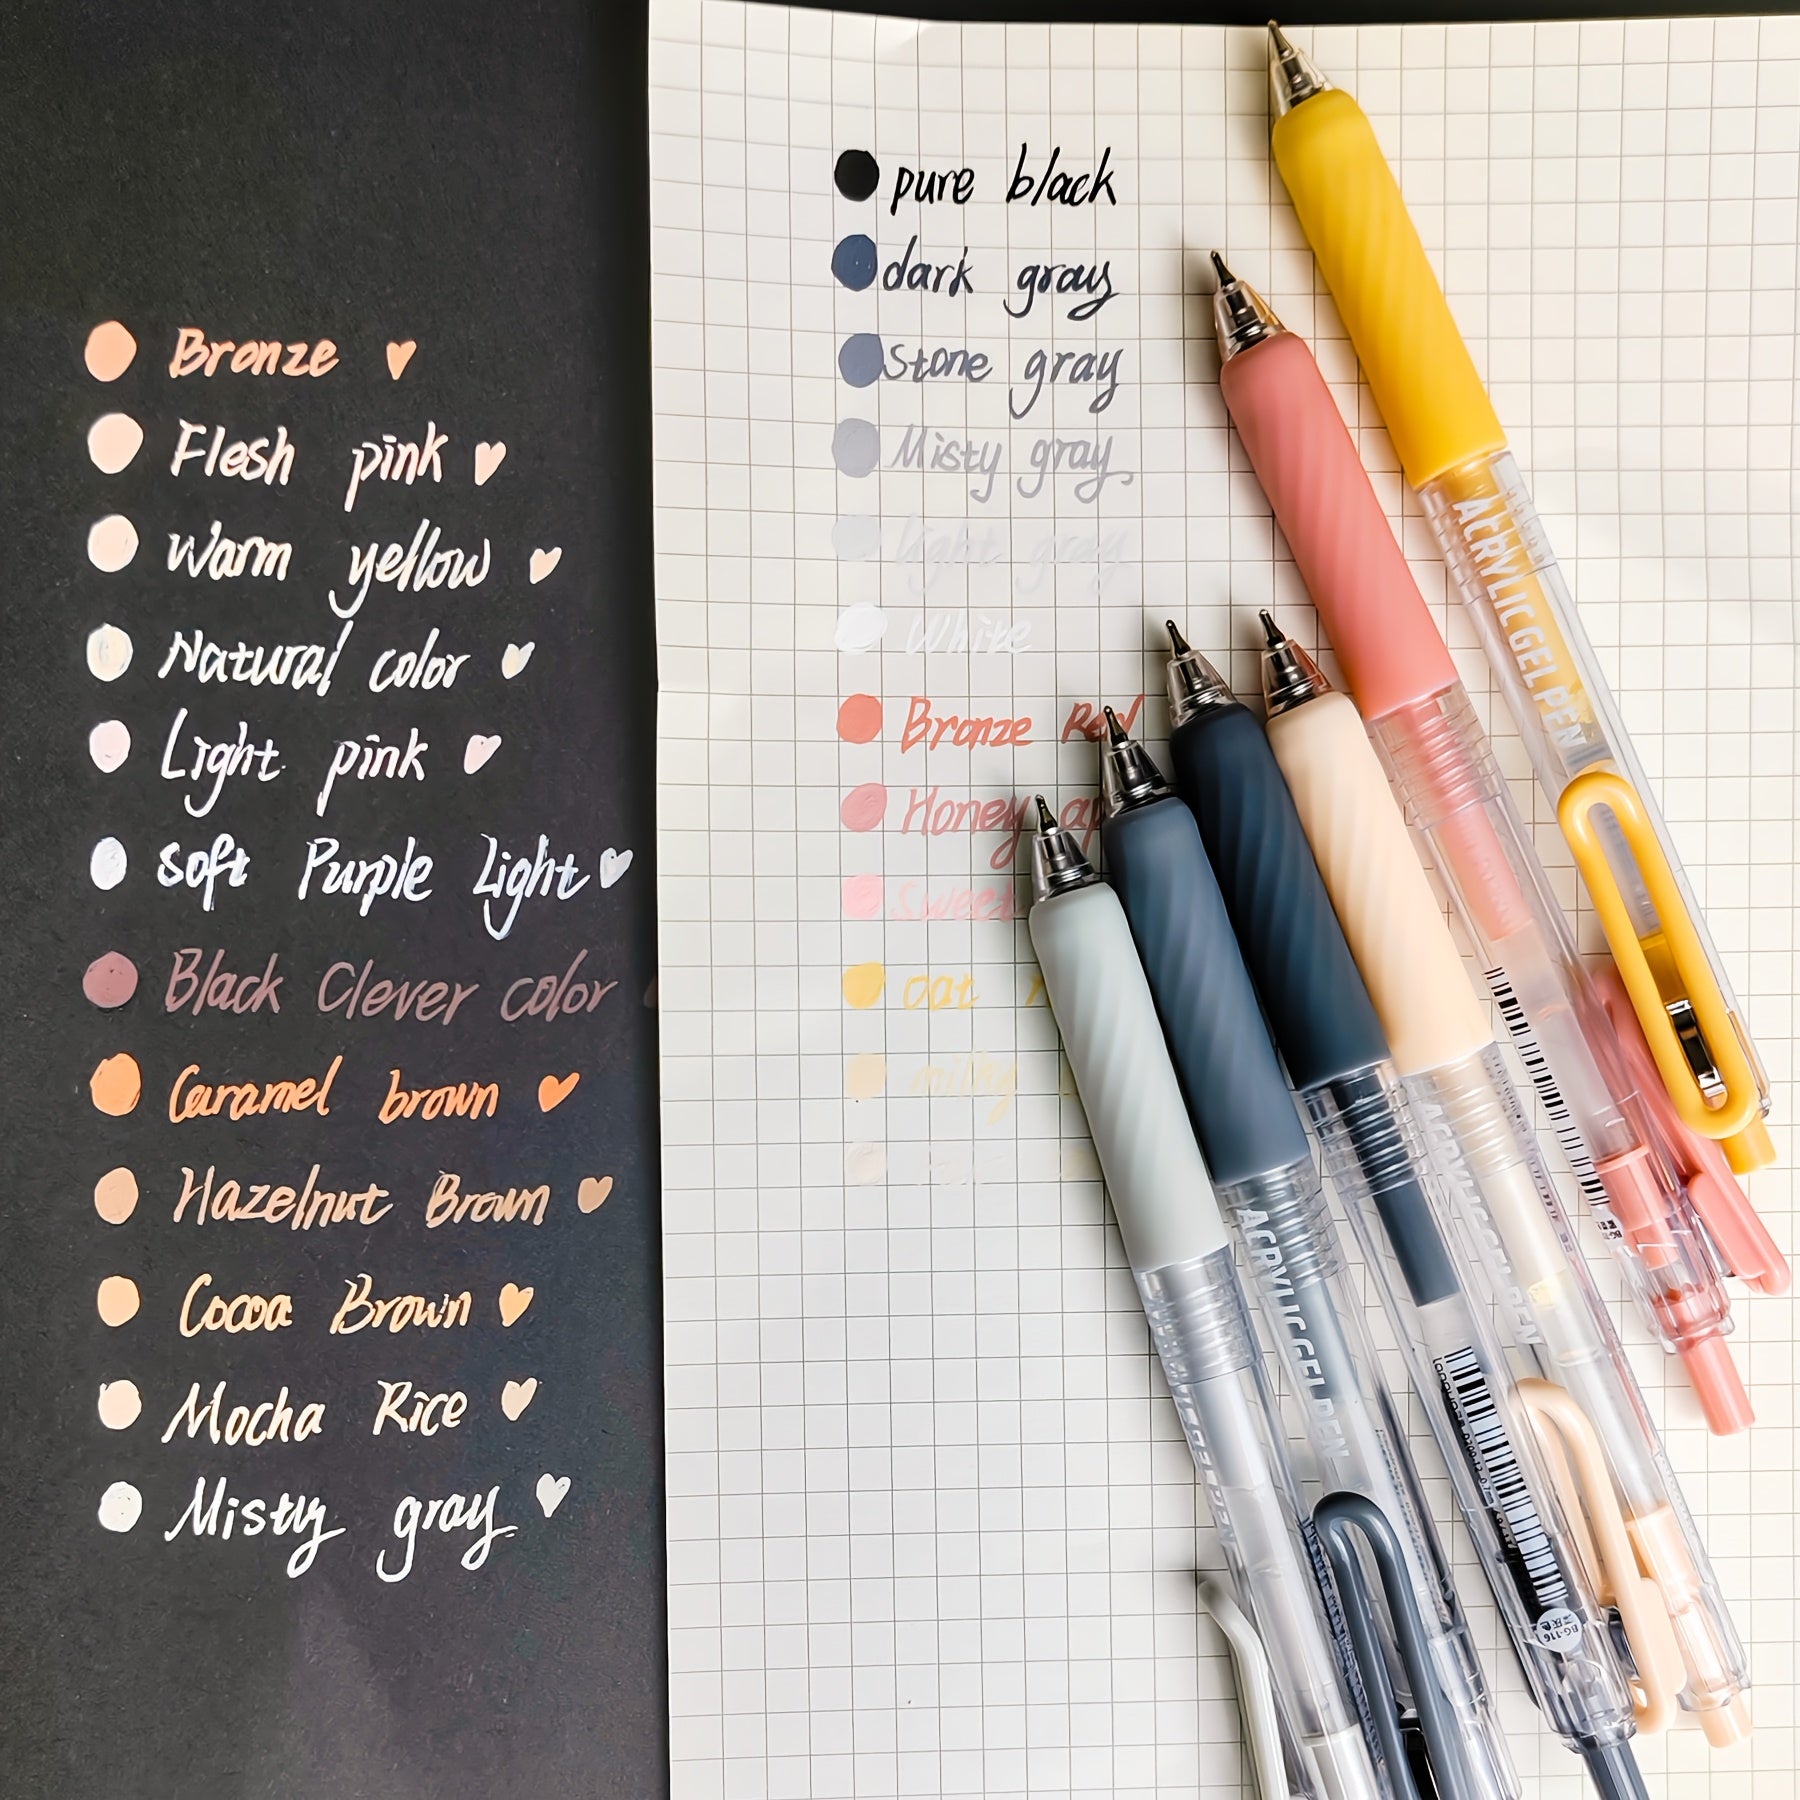 Bronze
Flesh pink
Warm yellow
Natural color
Light pink
Soft Purple Light
Black Clever color
Caramel brown
Hazelnut Brown
Cocoa Brown
Mocha Rice
Misty gray
pure black
dark gray
Stone gray
Misty gray
light gray
White
Bronze Red
Honey
Sweet
oat
milky
ACRYLIC GEL PEN
ACRYLIC GEL PEN
ACRYLIC GEL PEN
BG-116